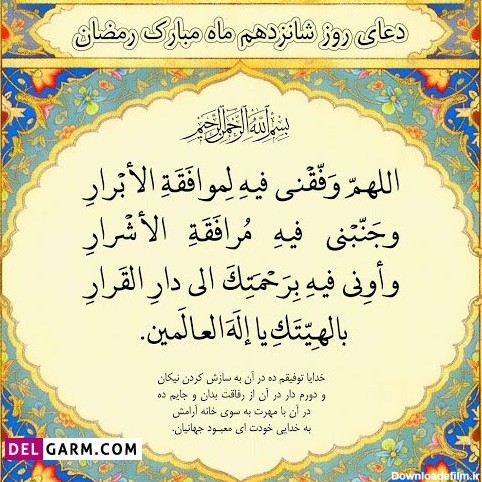 دعای روز شانزدهم ماه مبارک رمضان
بِسْمِ اللَّهِ الرَّحْمَنِ الرَّحِیمِ
اللهمّ وَفّقْنی فیهِ لِموافَقَةِ الأبْرارِ
وجَنّبْنی فیهِ مُرافَقَةِ الأشْرارِ
وأوِنی فیهِ بِرَحْمَتِكَ الی دارِ القَرارِ
بالهِیّتَكِ یا إلَهَ العالَمین.
خدایا توفیقم ده در آن به سازش کردن نیکان
و دورم دار در آن از رفاقت بدان و جایم ده
در آن با مهرت به سوی خانه آرامش
به خدایی خودت ای معبـود جهانیان.
DELGARM.COM
Downloadefilm.ir